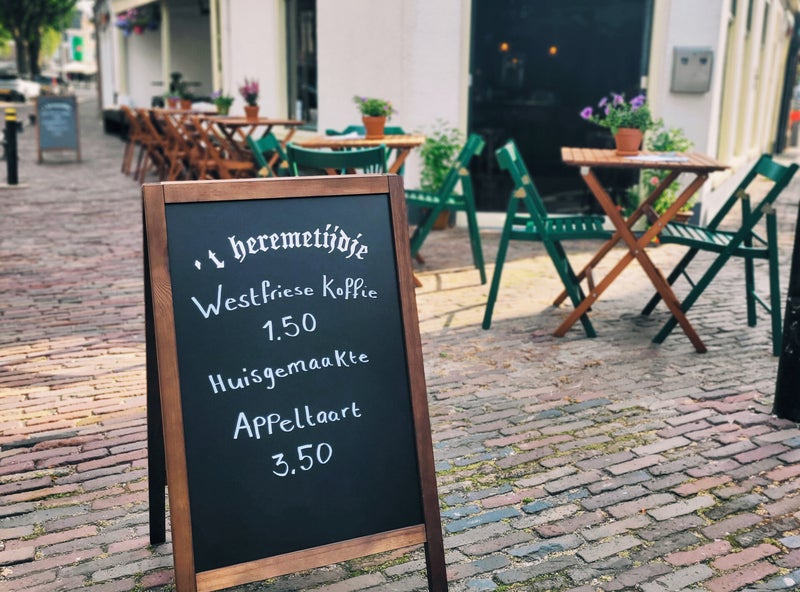 't heremetijdje
Westfriese Koffie
1.50
Huisgemaakte
Appeltaart
3.50